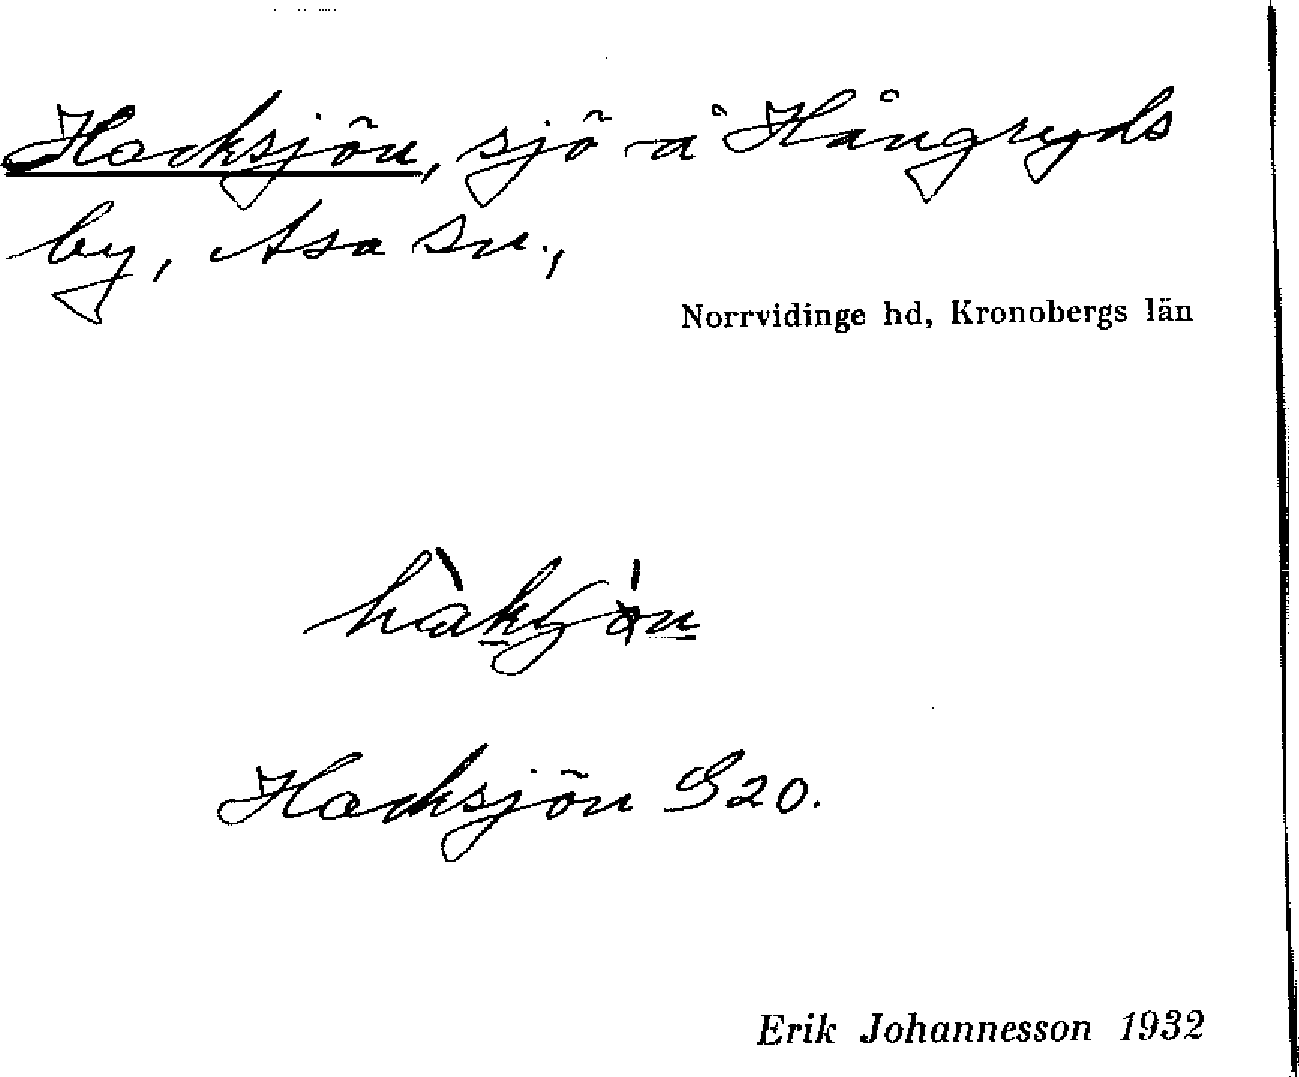 Hacksjön, sjö å Hångryds
by, Asa sn.,
Norrvidinge hd, Kronobergs län
Hacksjön G20.
Erik Johannesson 1932